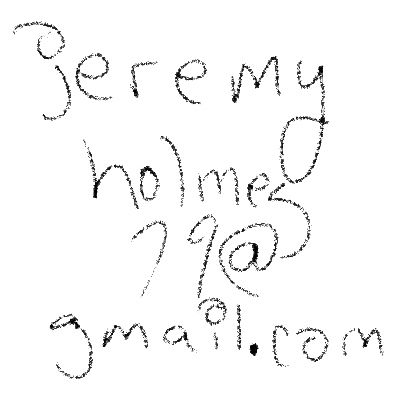 jeremy
holmes
79@
gmail.com